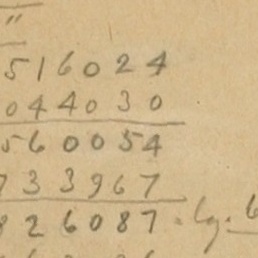 "
516024
044030
560054
733967
826087. lg. 6